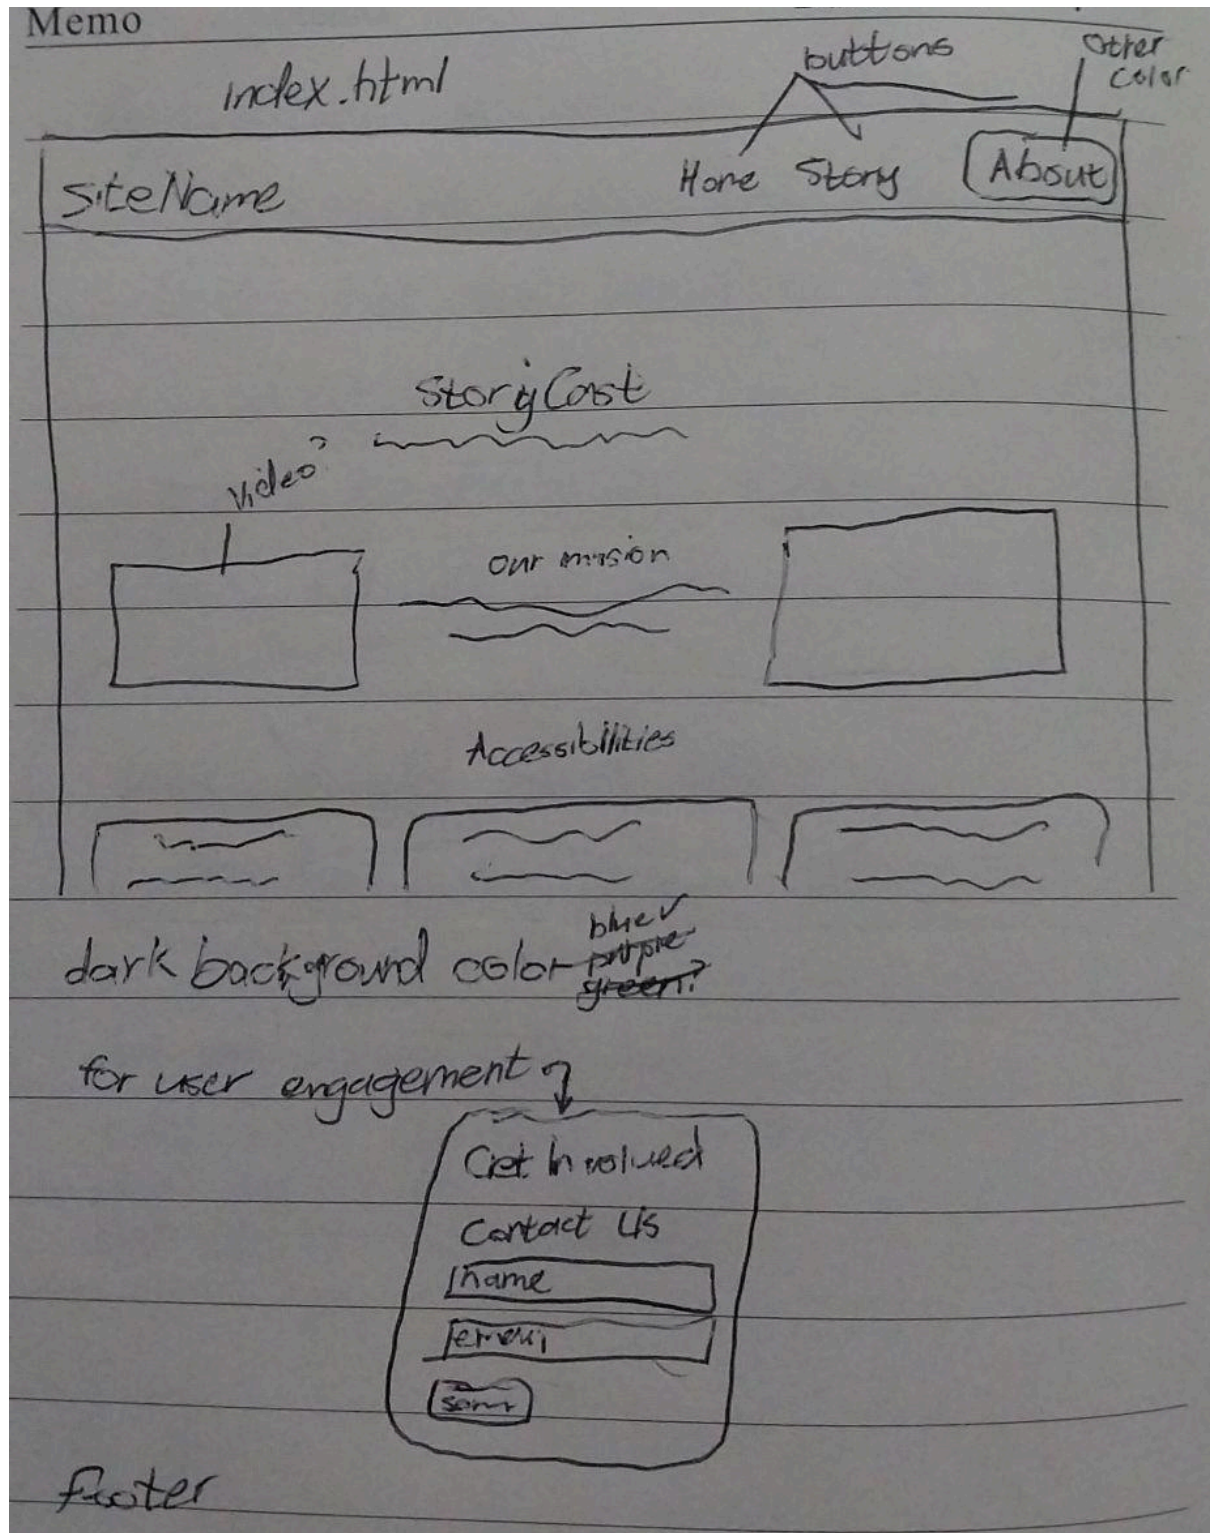 Memo
index.html
buttons
Other color
SiteName
Home Story About
StoryCast
Video?
Our mission
Accessibilities
dark background color
blue ✓
purple
green?
for user engagement
Get Involved
Contact Us
name
email
footer